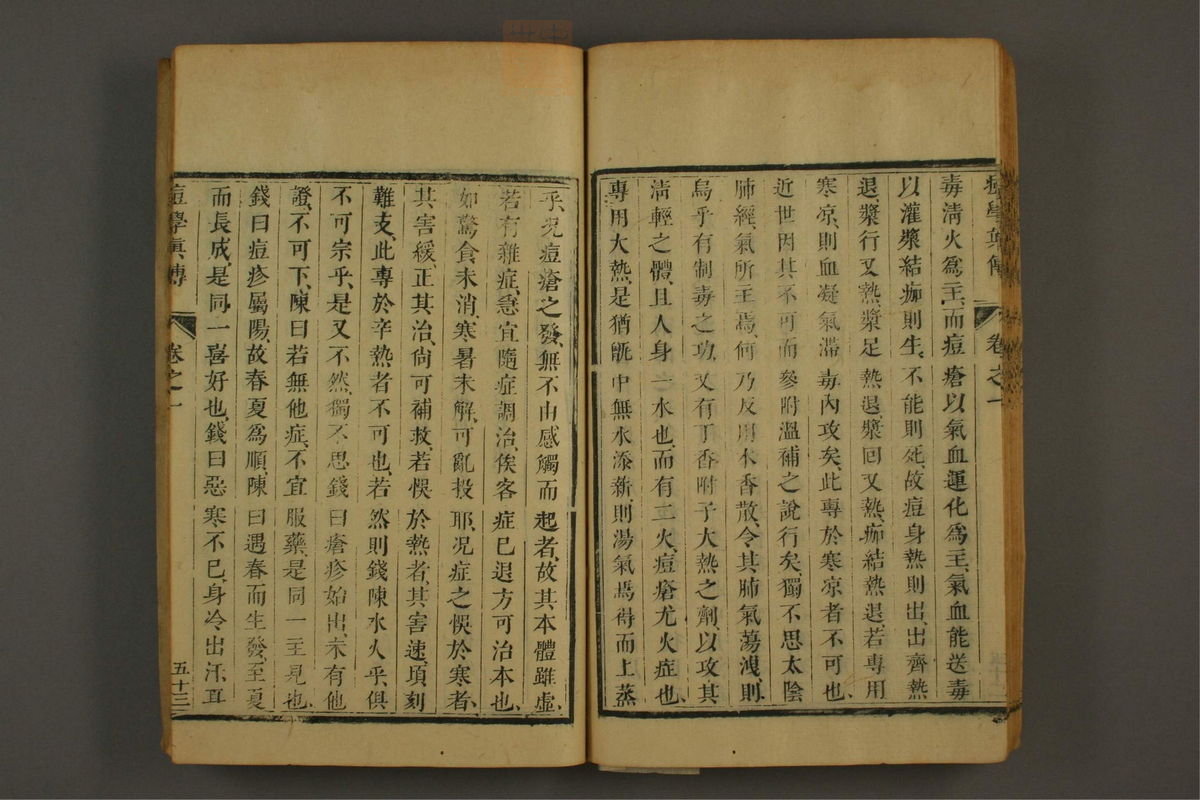 痘學真傳 卷之一
毒淸火爲主、而痘瘡以氣血運化爲主、氣血能送毒
以灌漿結痂則生、不能則死、故痘身熱則出、出齊熱
退、漿行又熱、漿足熱退、漿囘又熱、痂結熱退、若專用
寒凉、則血凝氣滯毒內攻矣、此專於寒凉者不可也、
近世因其不可而參附溫補之說行矣、獨不思太陰
肺經、氣所主焉、何乃反用木香散、令其肺氣蕩洩、則
烏乎有制毒之功、又有丁香附子大熱之劑、以攻其
淸輕之體、且人身一水也、而有二火、痘瘡尤火症也、
專用大熱、是猶甑中無水添新、則湯氣焉得而上蒸
乎、况痘瘡之發、無不由感觸而起者、故其本體雖虛、
若有雜症、急宜隨症調治、俟客症已退、方可治本也、
如驚食未消、寒暑未解、可亂投耶、况症之悞於寒者、
其害緩、正其治、尙可補救、若悞於熱者、其害速、項刻
難支、此專於辛熱者不可也、若然則錢陳水火乎、俱
不可宗乎、是又不然、獨不思錢曰瘡疹始出、未有他
證、不可下、陳曰若無他症、不宜服藥、是同一主見也、
錢曰痘疹屬陽、故春夏爲順、陳曰遇春而生發、至夏
而長成、是同一喜好也、錢曰惡寒不已、身冷出汗、耳
痘學眞傳 卷之一 五十三